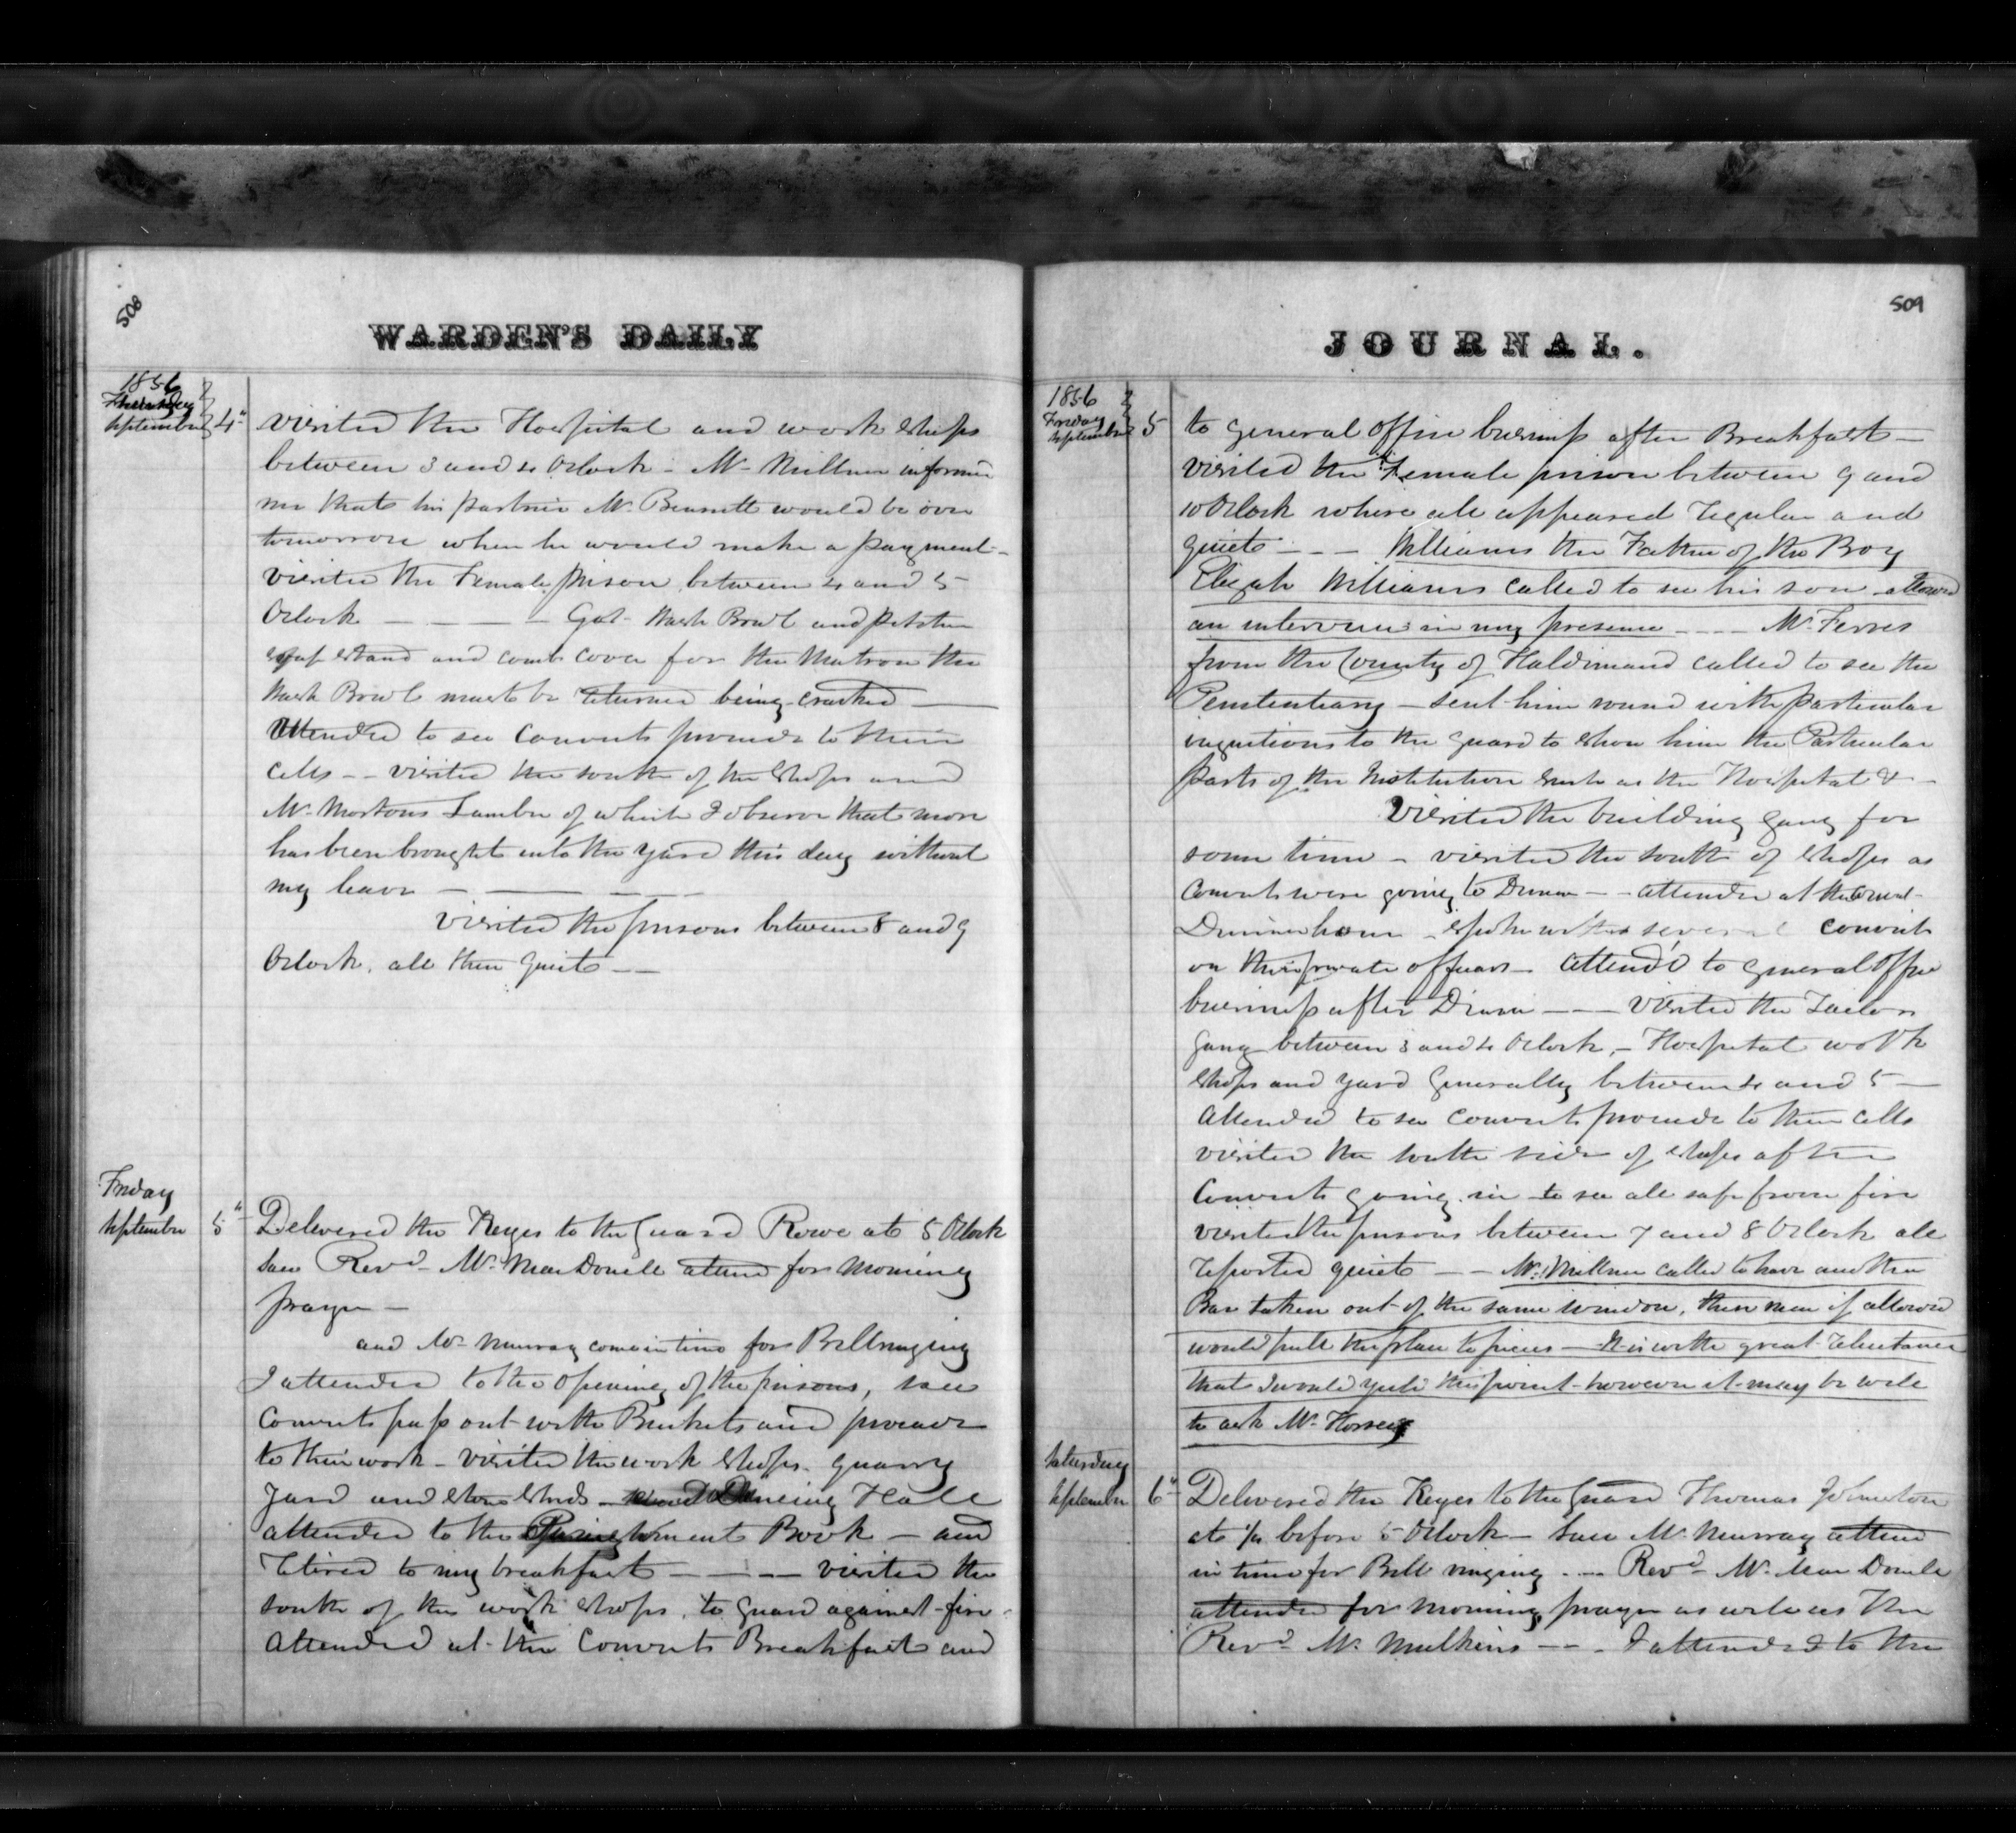 508
WARDEN'S DAILY
1856
Thursday
September 4"
visited the Hospital and work shops
between 3 and 4 Oclock - Mr Millner informed
me that his partner Mr. Bennett would be over
tomorrow when he would make a payment -
visited the Female prison between 4 and 5
Oclock - - - - Got Wash Bowl and pitcher
stand and comb cover for the Matron the
Wash Bowl must be returned being cracked -
Attended to see Convicts proceede to their
cells - - visited the south of the shops and
Mr Mortons Lumber of which I observe that more
has been brought into the yard this day without
my leave - - - -
visited the prisons between 8 and 9
Oclock, all then quiet - -
Friday
September 5"
Delivered the Keyes to the Guard Rowe at 5 Oclock
saw Revd Mr. MacDonell attend for Morning
prayer -
and Mr Murray come in time for Bellringing
I attended to the opening of the prisons, saw
Convicts pass out with Buckets and proceade
to their work - visited the work shops - quarry
yard and stone sheds - Dineing Hall
attended to the Punishment Book - and
retired to my breakfast - - - - visited the
south of the work shops, to guard against fire -
Attended at the Convicts Breakfast and
509
JOURNAL.
1856
Friday
September 5
to general office business after Breakfast -
visited the Female prison between 9 and
10 Oclock where all appeared regular and
quiet - - - Williams the Father of the Boy
Elijah Williams called to see his son allowed
an interview in my presence - - - - Mr Ferres
from the County of Haldimand called to see the
Penitentiary - sent him round with particular
injuctions to the guard to show him the Particular
parts of the Institution such as the Hospital & -
Visited the building gang for
some time - visited the south of shops as
Convicts were going to Dinner - - attended at the Convict
Dinner hour - spoke with several convicts
on their private affairs - attend'd to general office
business after Dinner - - - visited the Tailors
gang between 3 and 4 Oclock, - Hospital work
shops and yard generally between 4 and 5 -
Attended to see convicts proceede to their cells
visited the south side of shops after
Convicts going in to see all safe from fire
visited the prisons between 7 and 8 Oclock all
reported quiet - - Mr. Millner called to have another
Bar taken out of the same window, these men if allowed
would pull the place to pieces - It is with great reluctance
that I would yield this point - however it may be well
to ask Mr Horsey
Saturday
September 6"
Delivered the Keyes to the Guard Thomas Johnston
at 1/4 before 5 Oclock - saw Mr Murray attend
in time for Bell ringing - - - Revd Mr. MacDonell
attended for morning prayer as well as the
Revd Mr. Mulkins - - - I attended to the